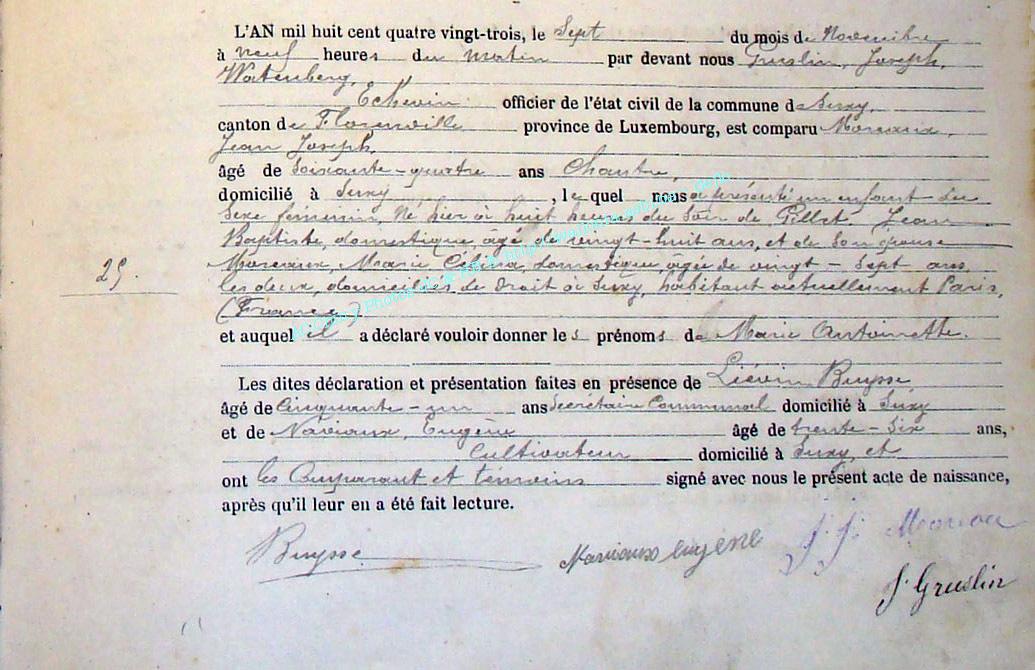 L'AN mil huit cent quatre vingt-trois, le Sept du mois de Novembre
à neuf heures du matin par devant nous Gruslin, Joseph,
Watenberg,
Echevin officier de l'état civil de la commune de Suxy,
canton de Florenville province de Luxembourg, est comparu Moreaux,
Jean Joseph,
âgé de Soixante-quatre ans Chantre,
domicilié à Suxy, lequel nous a présenté un enfant du
Sexe féminin, Né hier à huit heures du Soir de Gillet Jean
Baptiste, domestique, âgé de vingt-huit ans, et de Son épouse
25. Moreaux, Marie Célina, domestique, âgée de vingt-Sept ans,
les deux, domiciliés de droit à Suxy, habitant actuellement Paris,
(France)
et auquel il a déclaré vouloir donner les prénoms de Marie Antoinette.
Les dites déclaration et présentation faites en présence de Liévin Buysse,
âgé de Cinquante-un ans Secrétaire Communal domicilié à Suxy
et de Naviaux, Eugène âgé de trente-Six ans,
Cultivateur domicilié à Suxy, et
ont les Comparant et témoins signé avec nous le présent acte de naissance,
après qu'il leur en a été fait lecture.
Buysse Naviaux eugène J. J. Moreau
J Gruslin